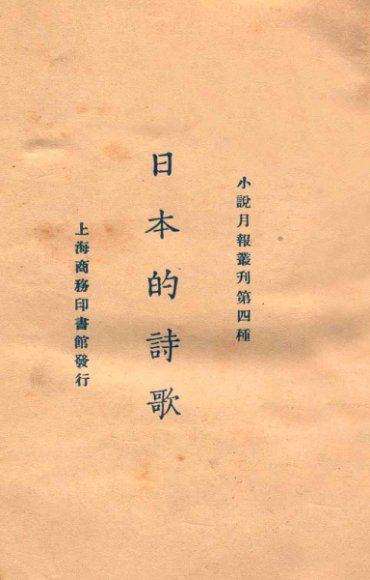 小說月報叢刊第四種
日本的詩歌
上海商務印書館發行